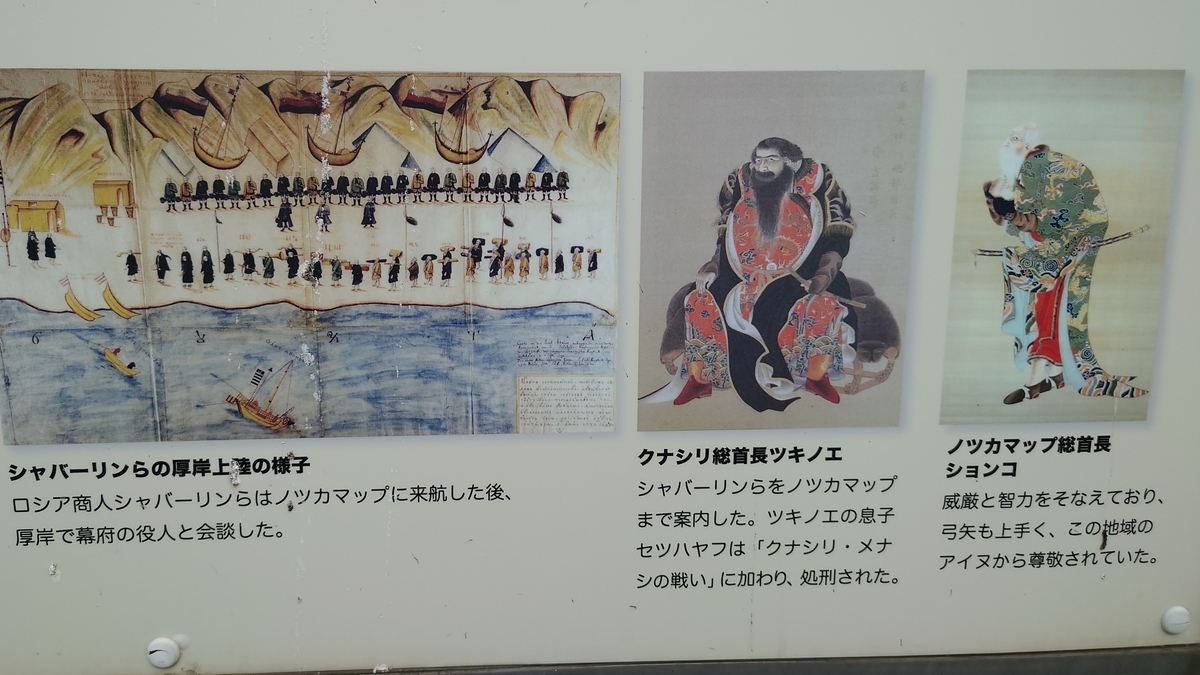 シャバーリンらの厚岸上陸の様子
ロシア商人シャバーリンらはノツカマップに来航した後、
厚岸で幕府の役人と会談した。
クナシリ総首長ツキノエ
シャバーリンらをノツカマップ
まで案内した。ツキノエの息子
セツハヤフは「クナシリ・メナ
シの戦い」に加わり、処刑された。
ノツカマップ総首長
ションコ
威厳と智力をそなえており、
弓矢も上手く、この地域の
アイヌから尊敬されていた。